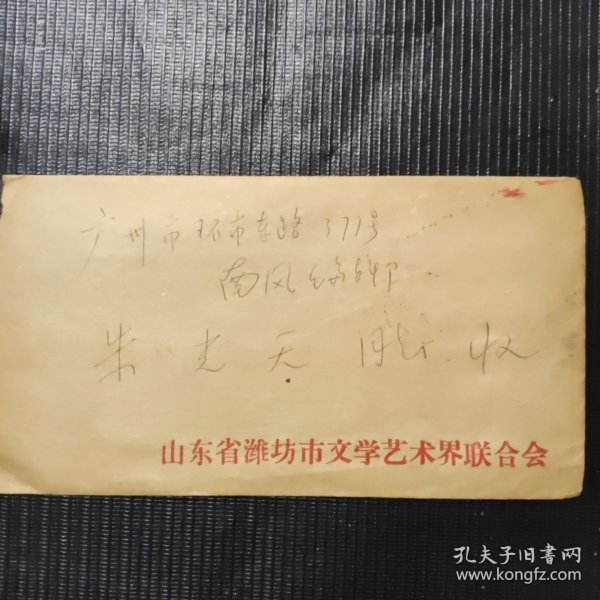 广州市环市东路377号
南风编辑部
朱光天 同志 收
山东省潍坊市文学艺术界联合会
孔夫子旧书网
www.kongfz.com